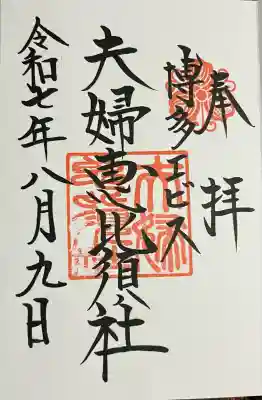 奉拝
博多エビス
夫婦恵比須社
令和七年八月九日